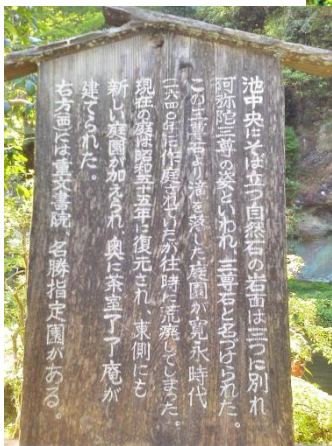 池中央にそば立つ自然石の岩面は三つに別れ
阿弥陀三尊の姿といわれ、三尊石と名づけられた。
この三尊石より滝を落した庭園が寛永時代
(一六四〇年)に作庭されていたが往時に荒廃してしまった。
現在の庭は昭和五十五年に復元され、東側にも
新しい庭園が加えられ、奥に茶室了了庵が
建てられた。
右方(西)には重文書院 名勝指定園がある。